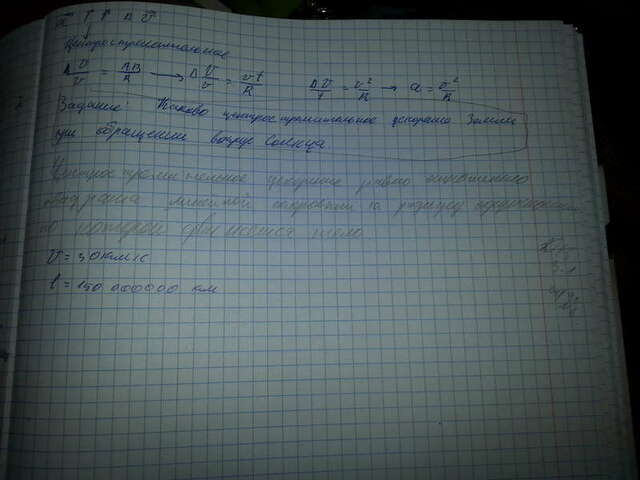 a ↑↑ Δ v
Центростремительное
Δv/v = AB/R → Δv/v = vt/R Δv/t = v²/R → a = v²/R
Задание: Каково центростремительное ускорение Земли
при обращении вокруг Солнца
Центростремительное ускорение равно отношению
квадрата линейной скорости к радиусу окружности
по которой движется тело
V = 30км/с
l = 150 000000 км